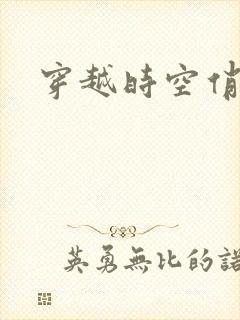 穿越時空俏
英勇無比的諾